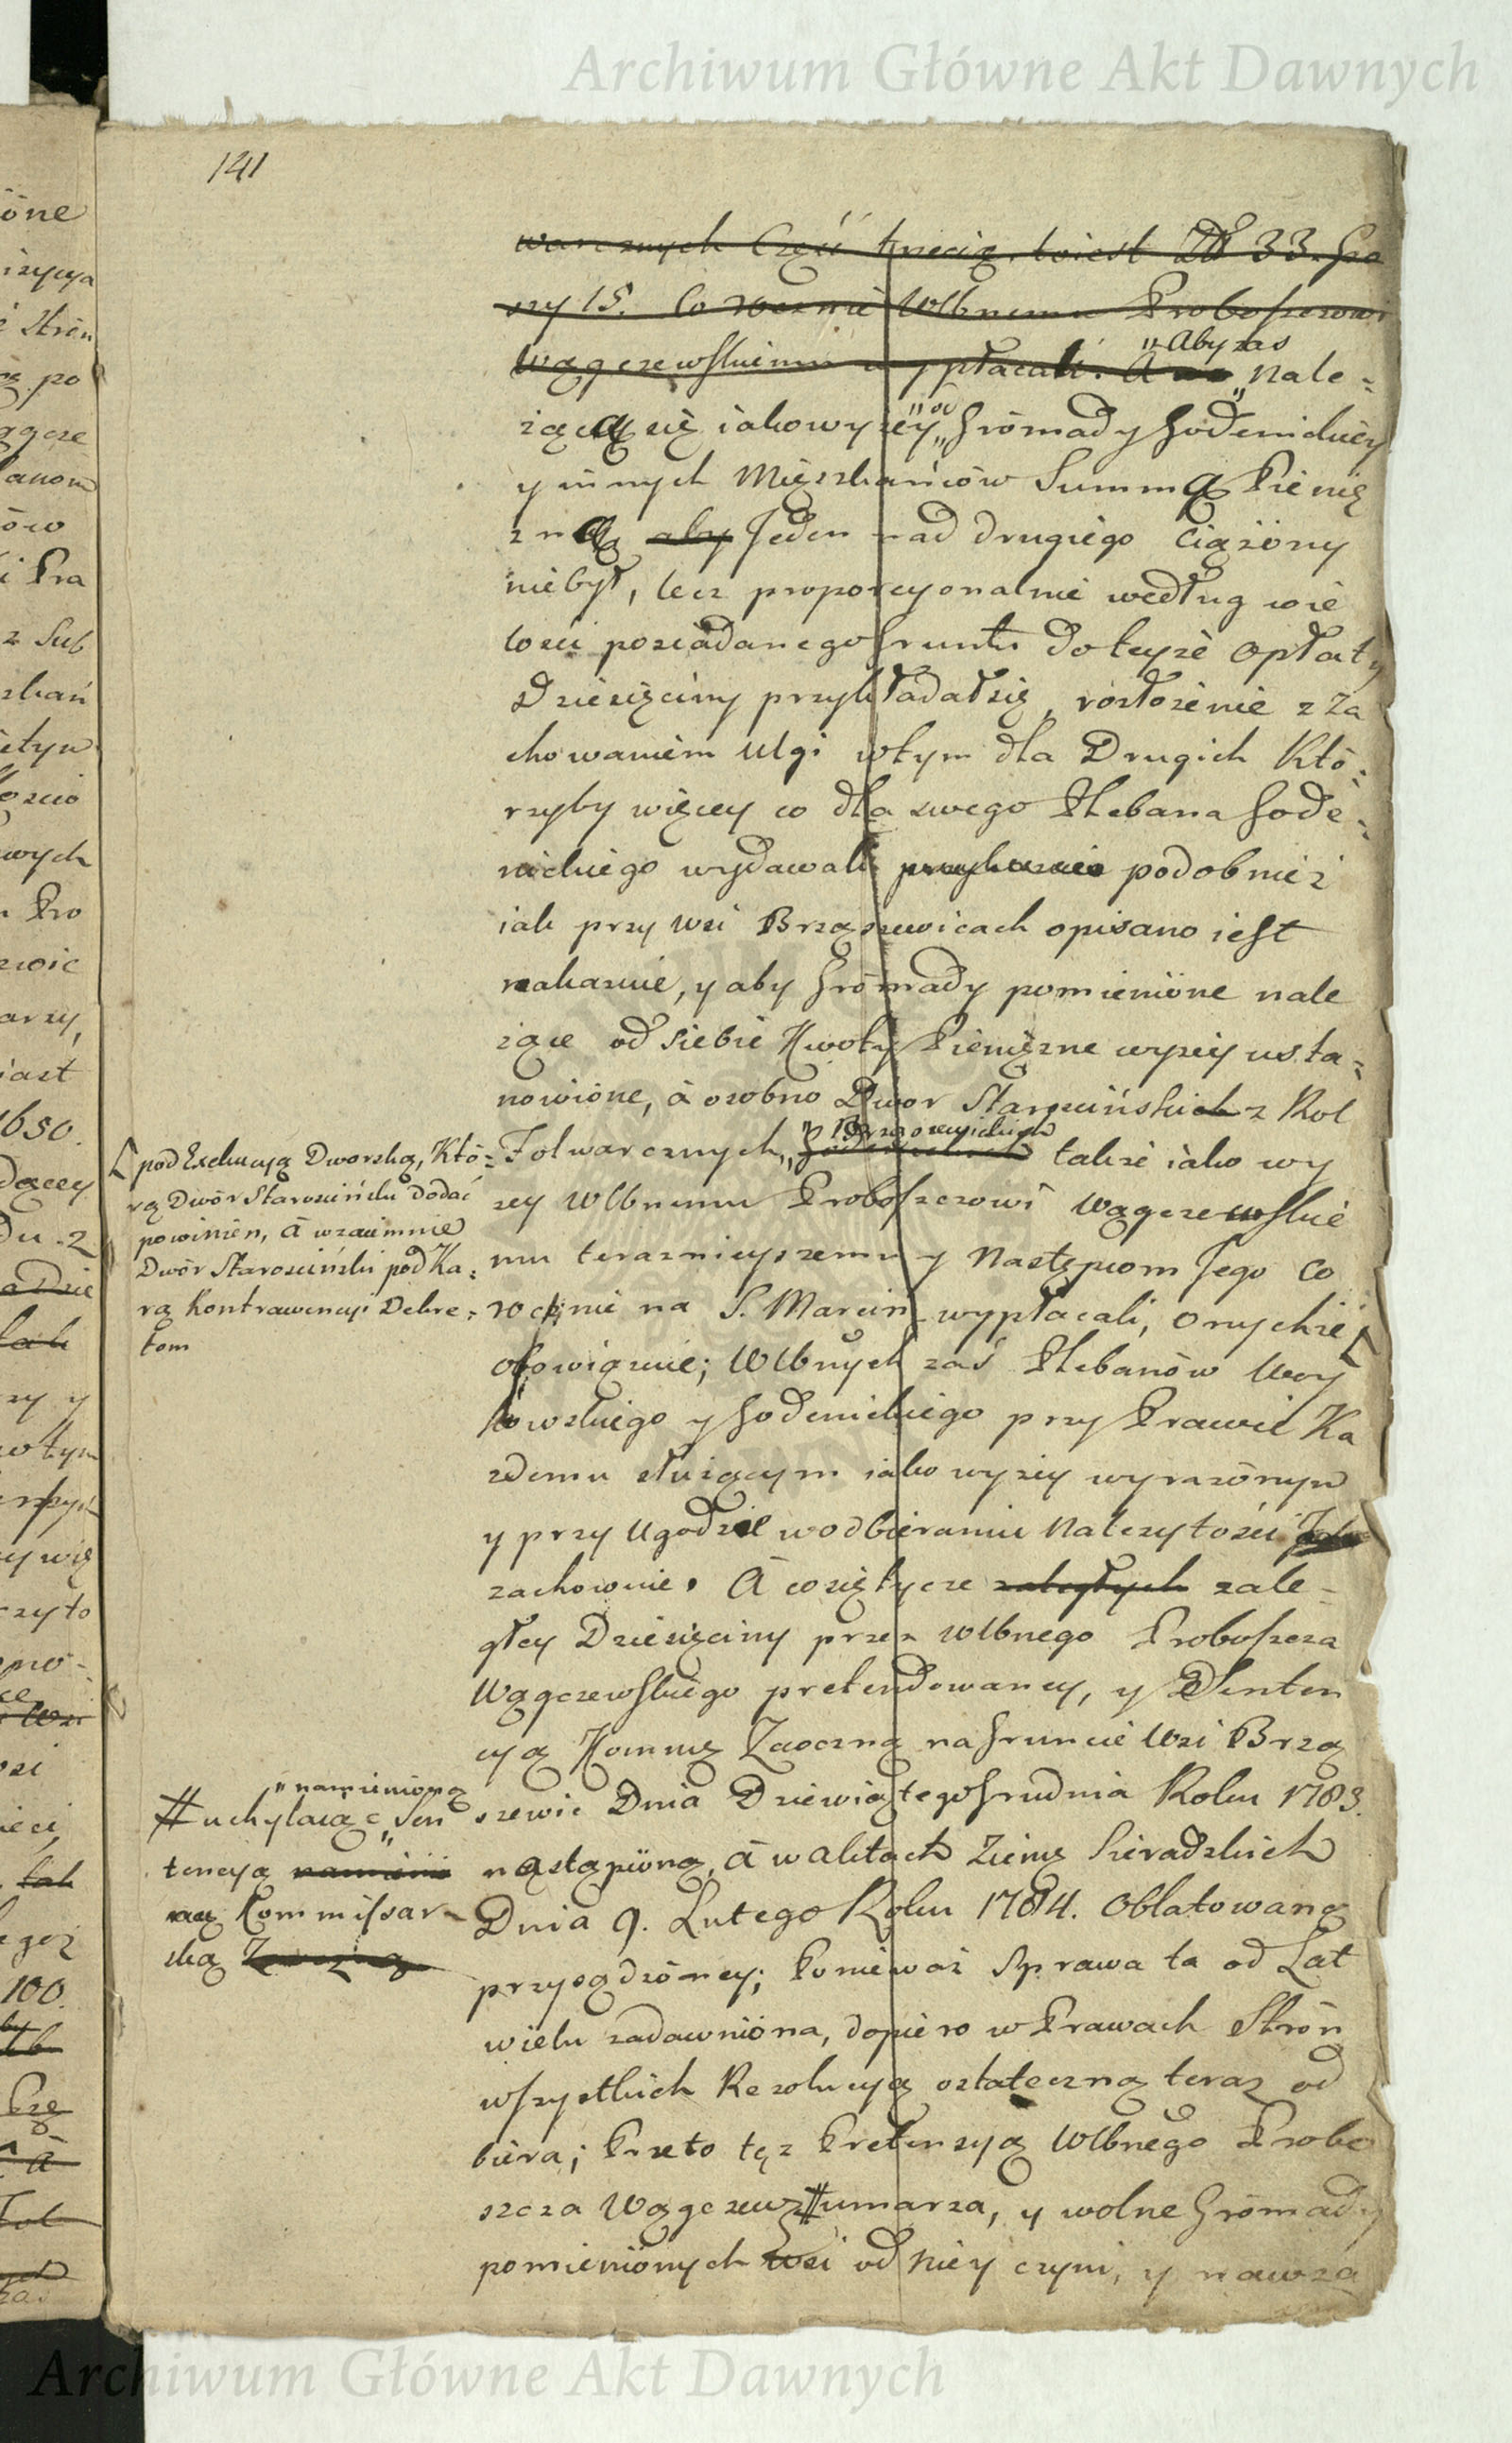 Archiwum Główne Akt Dawnych
141
warcznych Część trzecią, toiest Zł 33. Gro
szy 15. Co rocznie Wlbnemu Proboszczowi
Wągczewskiemu wypłacali. A
„Aby zas
nale=
żącą się iako wyżey „od„ Gromady Godenickiey
y innych Mięszkańców Summą Pienię
zną aby Jeden nad drugiego Ciążony
niebył, lecz proporcyonalnie według wie
lości posiadanego Gruntu do teyże Opłaty
Dziesięciny przykładał się, rozłożenie z Za
chowaniem Ulgi wtym dla Drugich Któ=
rzyby więcey co dla swego Plebana Gode=
nickiego wydawali podobnież
iak przy Wsi Brząszewicach opisano iest
nakazuie, y aby Gromady pomienione nale
żące od siebie Kwoty Pieniężne wyżey usta=
nowione, à osobno Dwor Starościński z Rol
Folwarcznych „Brząszewickich Godenickich także iako wy
żey Wlbnemu Proboszczowi Wągczewskie
mu teraznieyszemu y Następcom Jego Co
rocznie na S. Marcin wypłacali, Onychże
obowiązuie; Wlbnych zaś Plebanów Woy
kowskiego y Godenickiego przy Prawie Ka
żdemu służącym iako wyżey wyrażonym
y przy Ugodzie w odbieraniu Należytości
zachowuie. A co się tycze zaległych zale-
głey Dziesięciny przez Wlbnego Proboszcza
Wągczewskiego pretendowaney, y Senten
cyą Kommę Zaoczną na Gruncie Wsi Brzą
szewic Dnia Dziewiątego Grudnia Roku 1783.
nastąpioną, à w aktach Ziemę Sieradzkich
Dnia 9. Lutego Roku 1784. Oblatowaną
przysądzoney; Ponieważ Sprawa ta od Lat
wielu zadawniona, dopiero w Prawach Stron
wszystkich Rezolucyą ostateczną teraz od
biera; Przeto tęż Pretensyą Wlbnego Probo
szcza Wągczews # umarza, y wolne Gromady
pomienionych Wsi od niey czyni, y nawza
[ pod Exekucyą Dworską, Któ=
rą Dwór Starościński dodać
powinien, à wzaiemnie
Dwór Starościński pod Ka=
rą Kontrawencyi Dekre=
tom
„namienioną
# uchylaiąc „ Sen
tencyą namienio
ną Kommissar-
ską Zaoczną
Archiwum Główne Akt Dawnych